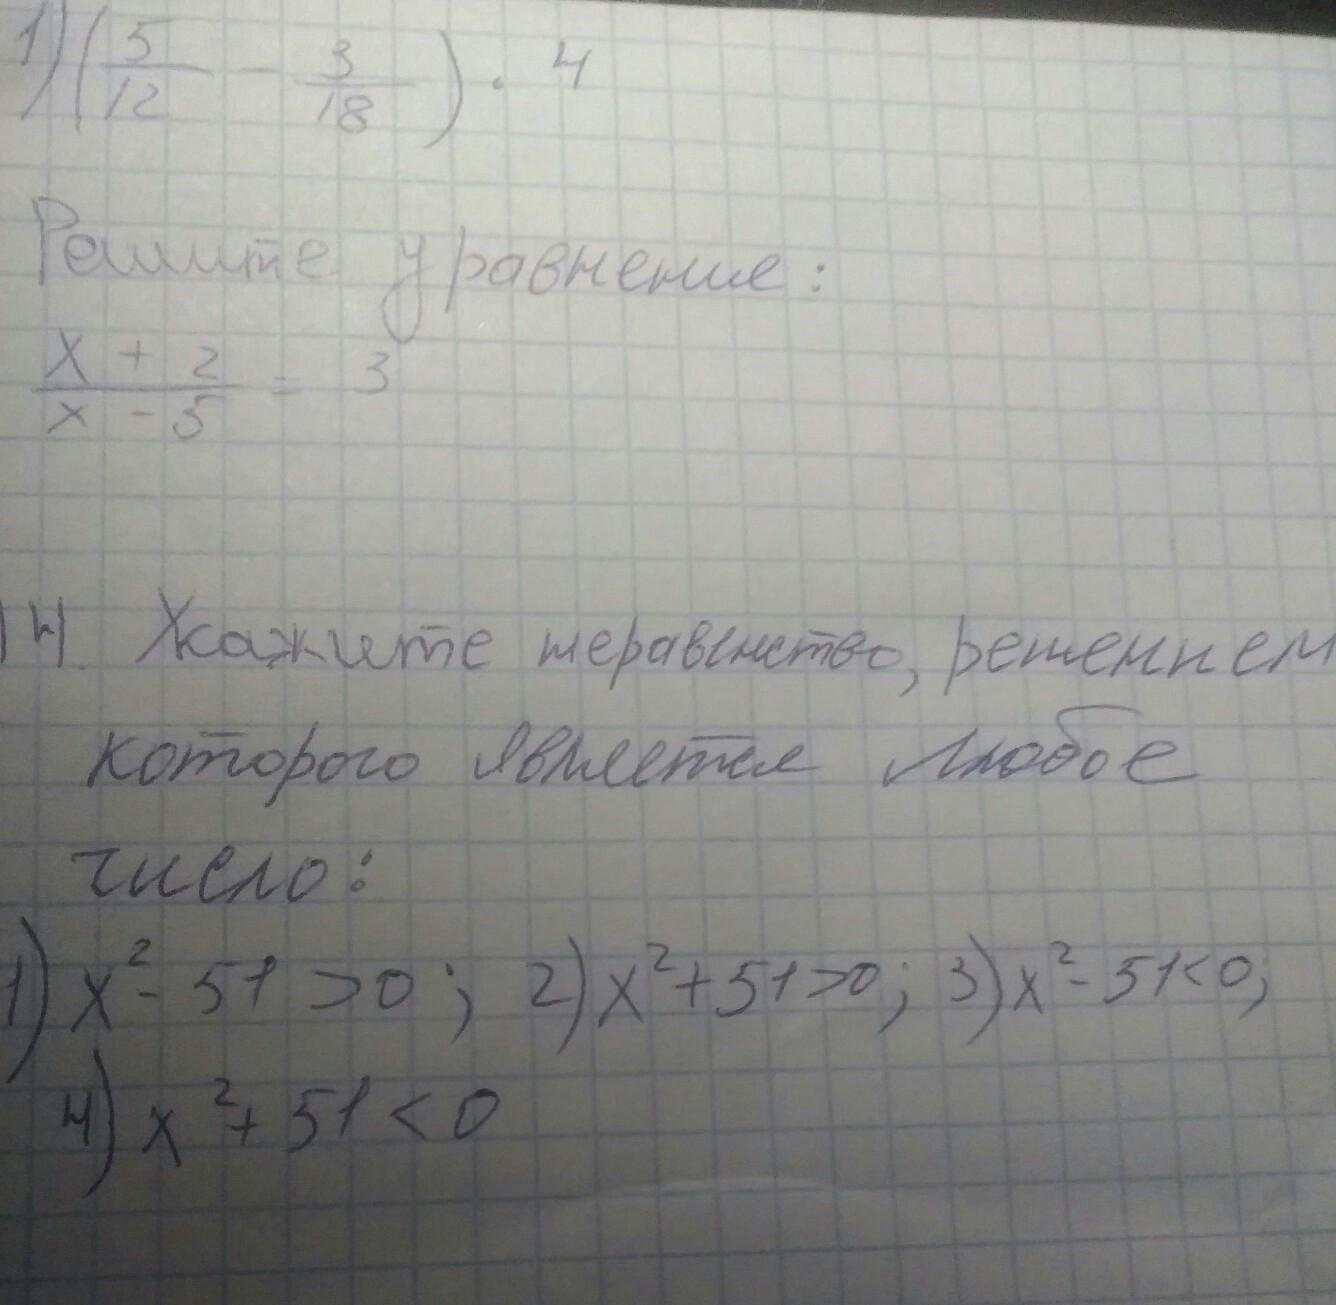 1) (5/12 - 3/18) · 4
Решите уравнение:
x + 2 / x - 5 = 3
14. Укажите неравенство, решением
которого является любое
число:
1) x² - 51 > 0; 2) x² + 51 > 0; 3) x² - 51 < 0;
4) x² + 51 < 0